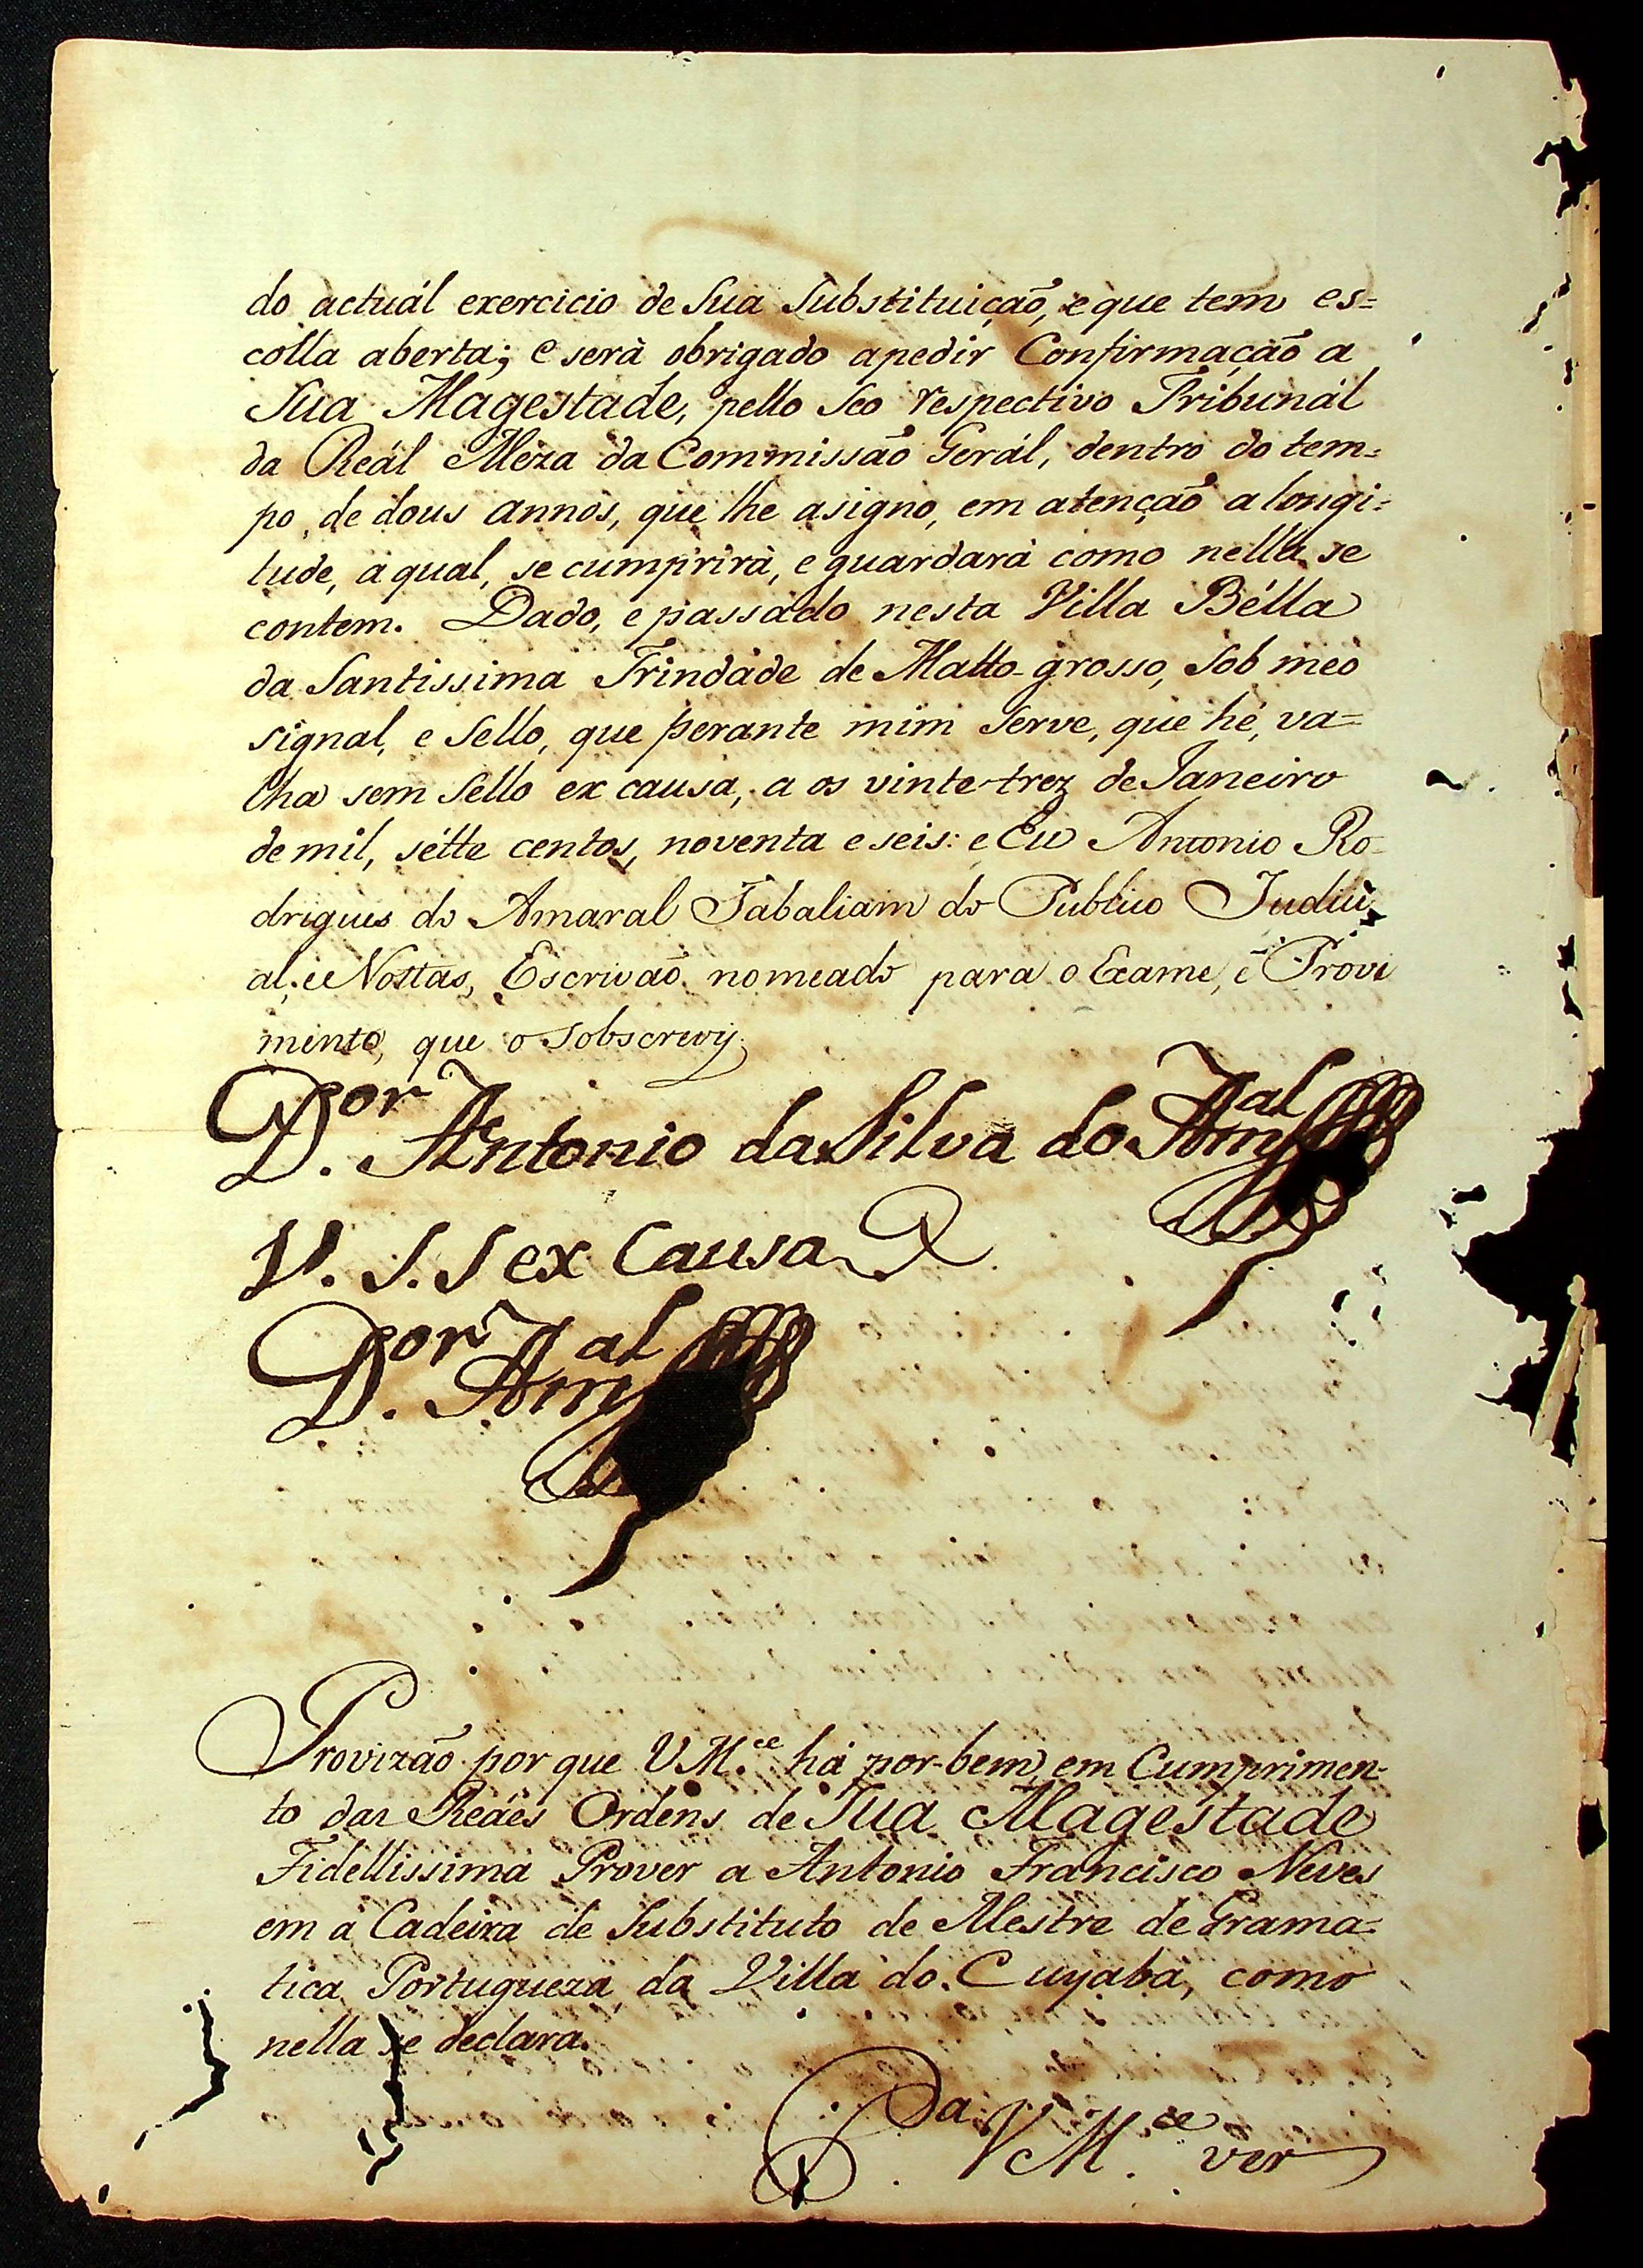 do actuál exercicio de Sua Substituição, e que tem es=
colla aberta; e serà obrigado apedir Confirmação a
Sua Magestade, pello Seo respectivo Tribunál
da Reál Mèza da Commissão Gerál, dentro do tem=
po, de dous annos, que lhe asigno, em atenção a longi=
tude, a qual, se cumprirà, e guardarà como nella se
contem. Dado, e passado nesta Villa Bélla
da Santissima Trindade de Matto-grosso, Sob meo
signal, e Sello, que perante mim Serve, que hé, va=
lha sem Sello ex causa, a os vinte-trez de Janeiro
de mil, sétte centos, noventa e seis: e Eu Antonio Ro-
drigues do Amaral Tabaliam do Publico Judici
al, e Nottas, Escrivaõ nomeado para o Exame, e Provi
mento, que o Sobscrevy.
D.or Antonio da Silva do Am.al
V. S. S ex Causa
D.or Am.al
Provizão por que V M.ce há por-bem, em Cumprimen-
to das Reáes Ordens de Sua Magestade
Fidellissima Prover a Antonio Francisco Neves
em a Cadeira de Substituto de Mestre de Grama=
tica Portugueza da Villa do Cuyabá, como
nella se declara.
P.a V M.ce ver